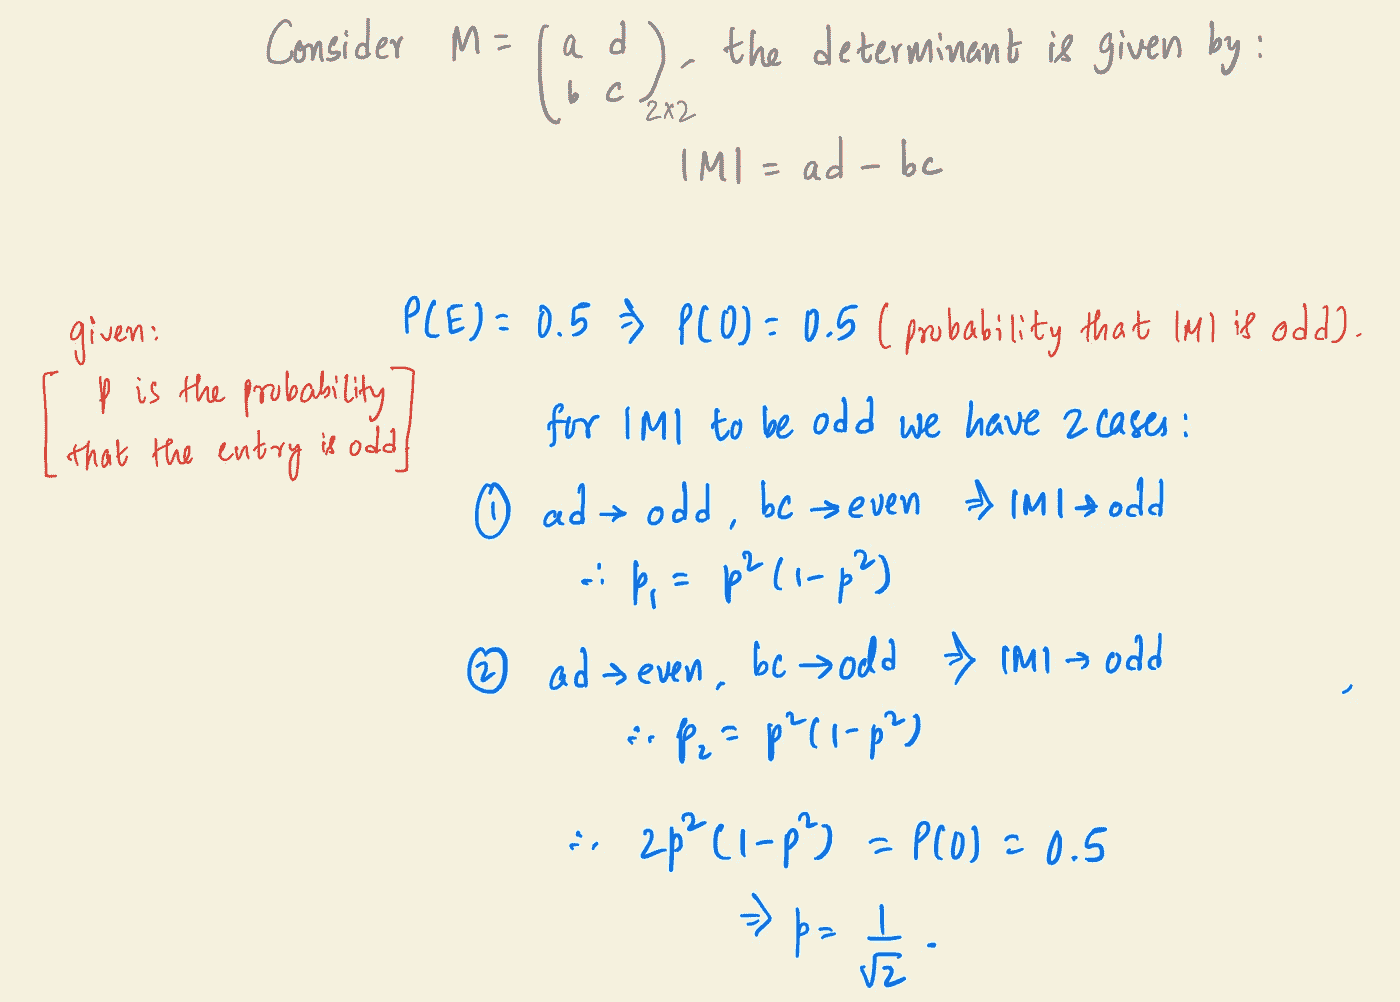 Consider M = (a d
b c)2×2, the determinant is given by:
|M| = ad - bc
P(E) = 0.5 ⇒ P(O) = 0.5 (probability that |M| is odd).
given:
[p is the probability
that the entry is odd]
for |M| to be odd we have 2 cases:
① ad → odd, bc → even ⇒ |M| → odd
∴ p₁ = p²(1-p²)
② ad → even, bc → odd ⇒ |M| → odd
∴ p₂ = p²(1-p²)
∴ 2p²(1-p²) = P(O) = 0.5
⇒ p = 1/√2.